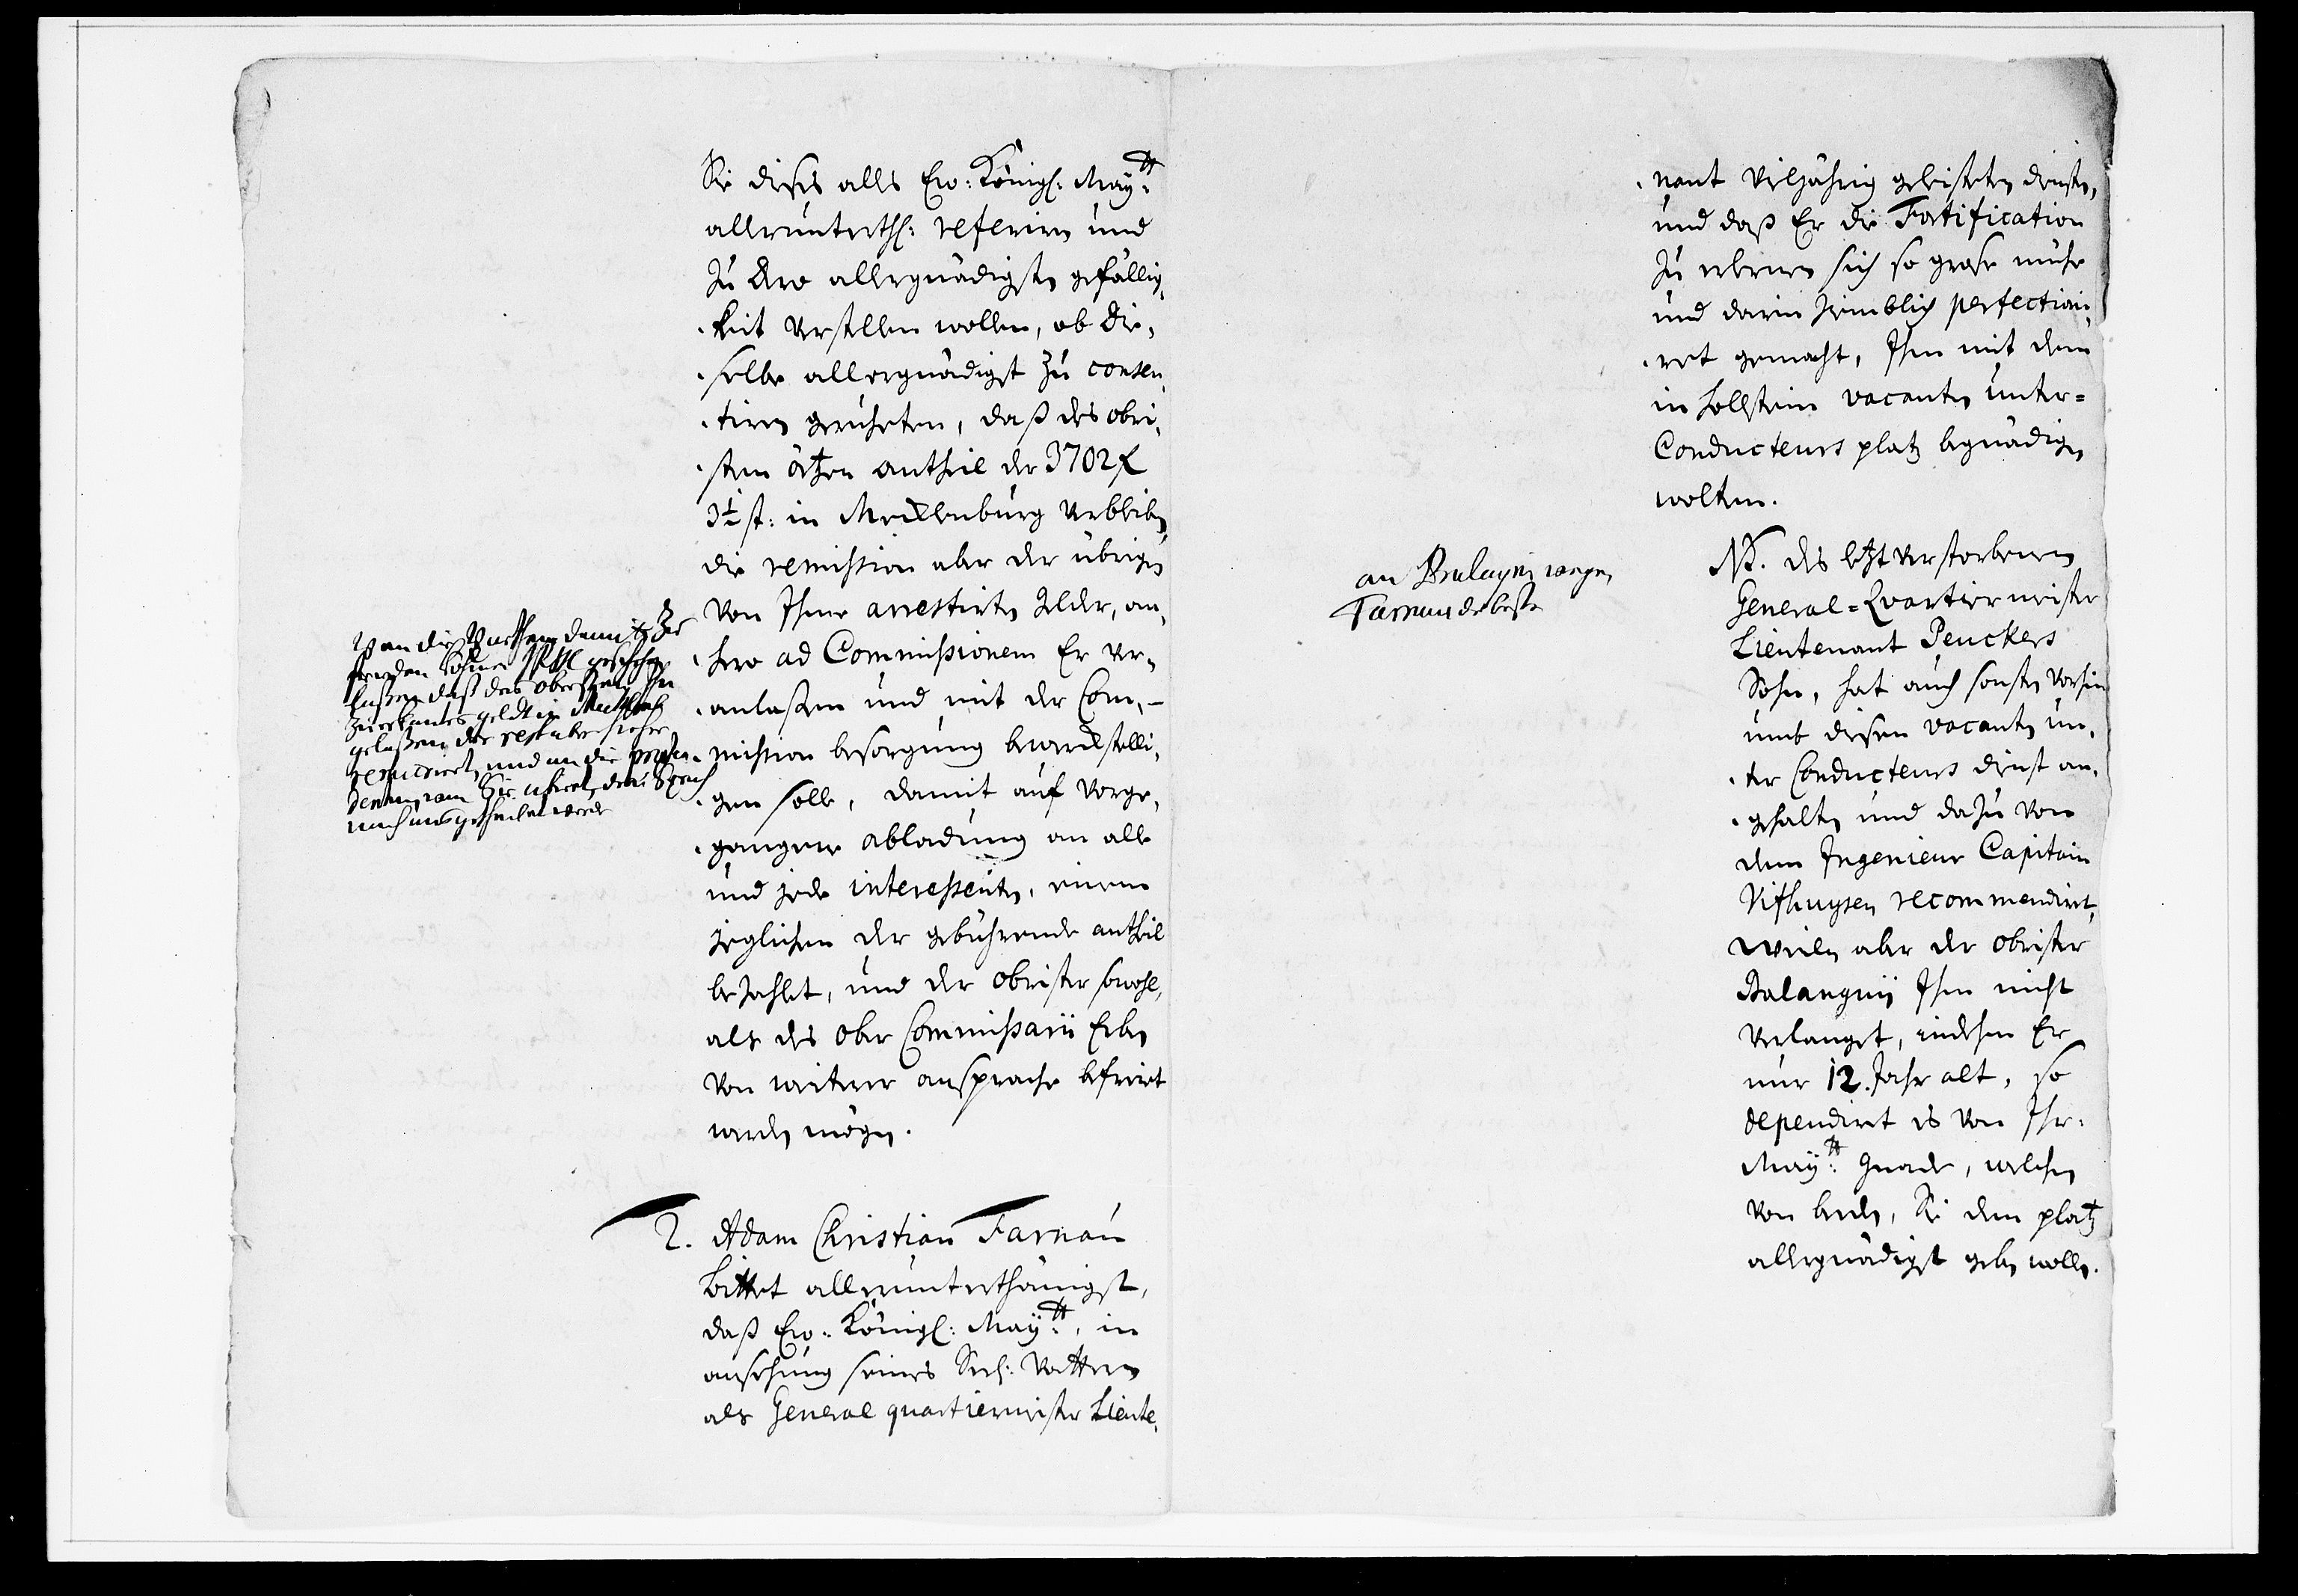 Sie dießes alls Ew: Königl: Maytt:
allerunterth: referiren und
zu dero allergnädigsten gefällig,
keit verstellen wollen, ob Die,
selbe allergnädigst zu consen,
tiren geruheten, daß des obri,
sten ätzen antheil der 3702 
3½ st: in Mecklenburg verbleiben
die remission aber der übrigen
von Ihme arrestirten gelder, an,
hero ad Commissionem Er ver,
anlaßen und mit der Com,
mission besorgung bewerckstelli,
gen solle, damit auf vorge,
gangene abladung an alle
und jede interessenten, einem
jeglichen der gebührende antheil
bezahlet, und der obrister sowohl,
als des ober Commissarii Erben
von weiterer ansprache befreiet
werden mögen.
an die
daß des obersten
zuerkantes geldt in Meckelnb
gelaßen der rest aber hieher
remitiert, und an die
2. Adam Christian Farnau
bittet allerunterthänigst,
daß Ew: Königl: Maytt:, in
ansehung seines Seel: Vattern
als General quartiermeister Lieute,
nant vieljährig geleisteten diensten,
und daß Er die Fortification
zu erlernen sich so große mühe
und darin ziemblich perfectioni,
ret gemacht, Ihn mit dem
in Hollstein vacanten unter=
Conducteurs platz begnädigen
wolten.
an
Farnau de beste
NB. des letzt verstorbenen
General=Quartiermeister
Lieutenant Peuckers
Sohn, hat auch sonsten vorhin
umb diesen vacanten un,
ter Conducteurs dienst an,
gehalten und dazu von
dem Ingenieur Capitain
recommendiret,
Weilen aber der obrister
Ihn nicht
verlanget, indehm Er
nur 12. Jahr alt, so
dependiret es von Ihr:
Maytt: Gnade, welchen
von beeden, Sie den platz
allergnädigst geben wollen.